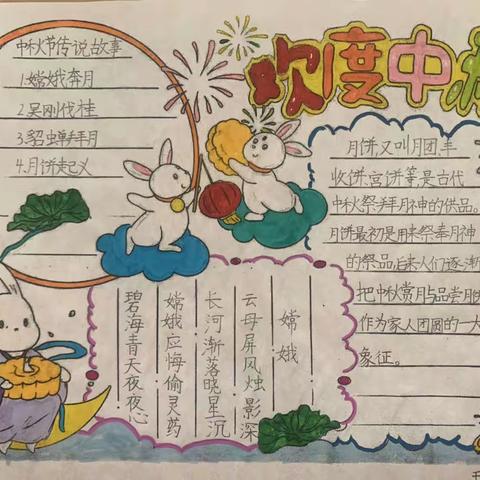 欢度中秋
中秋节传说故事
1.嫦娥奔月
2.吴刚伐桂
3.貂蝉拜月
4.月饼起义
月饼,又叫月团、丰
收饼、宫饼等,是古代
中秋祭拜月神的供品。
月饼最初是用来祭奉月神
的祭品,后来人们逐渐
把中秋赏月与品尝月
作为家人团圆的一大
象征。
嫦娥
云母屏风烛影深
长河渐落晓星沉
嫦娥应悔偷灵药
碧海青天夜夜心